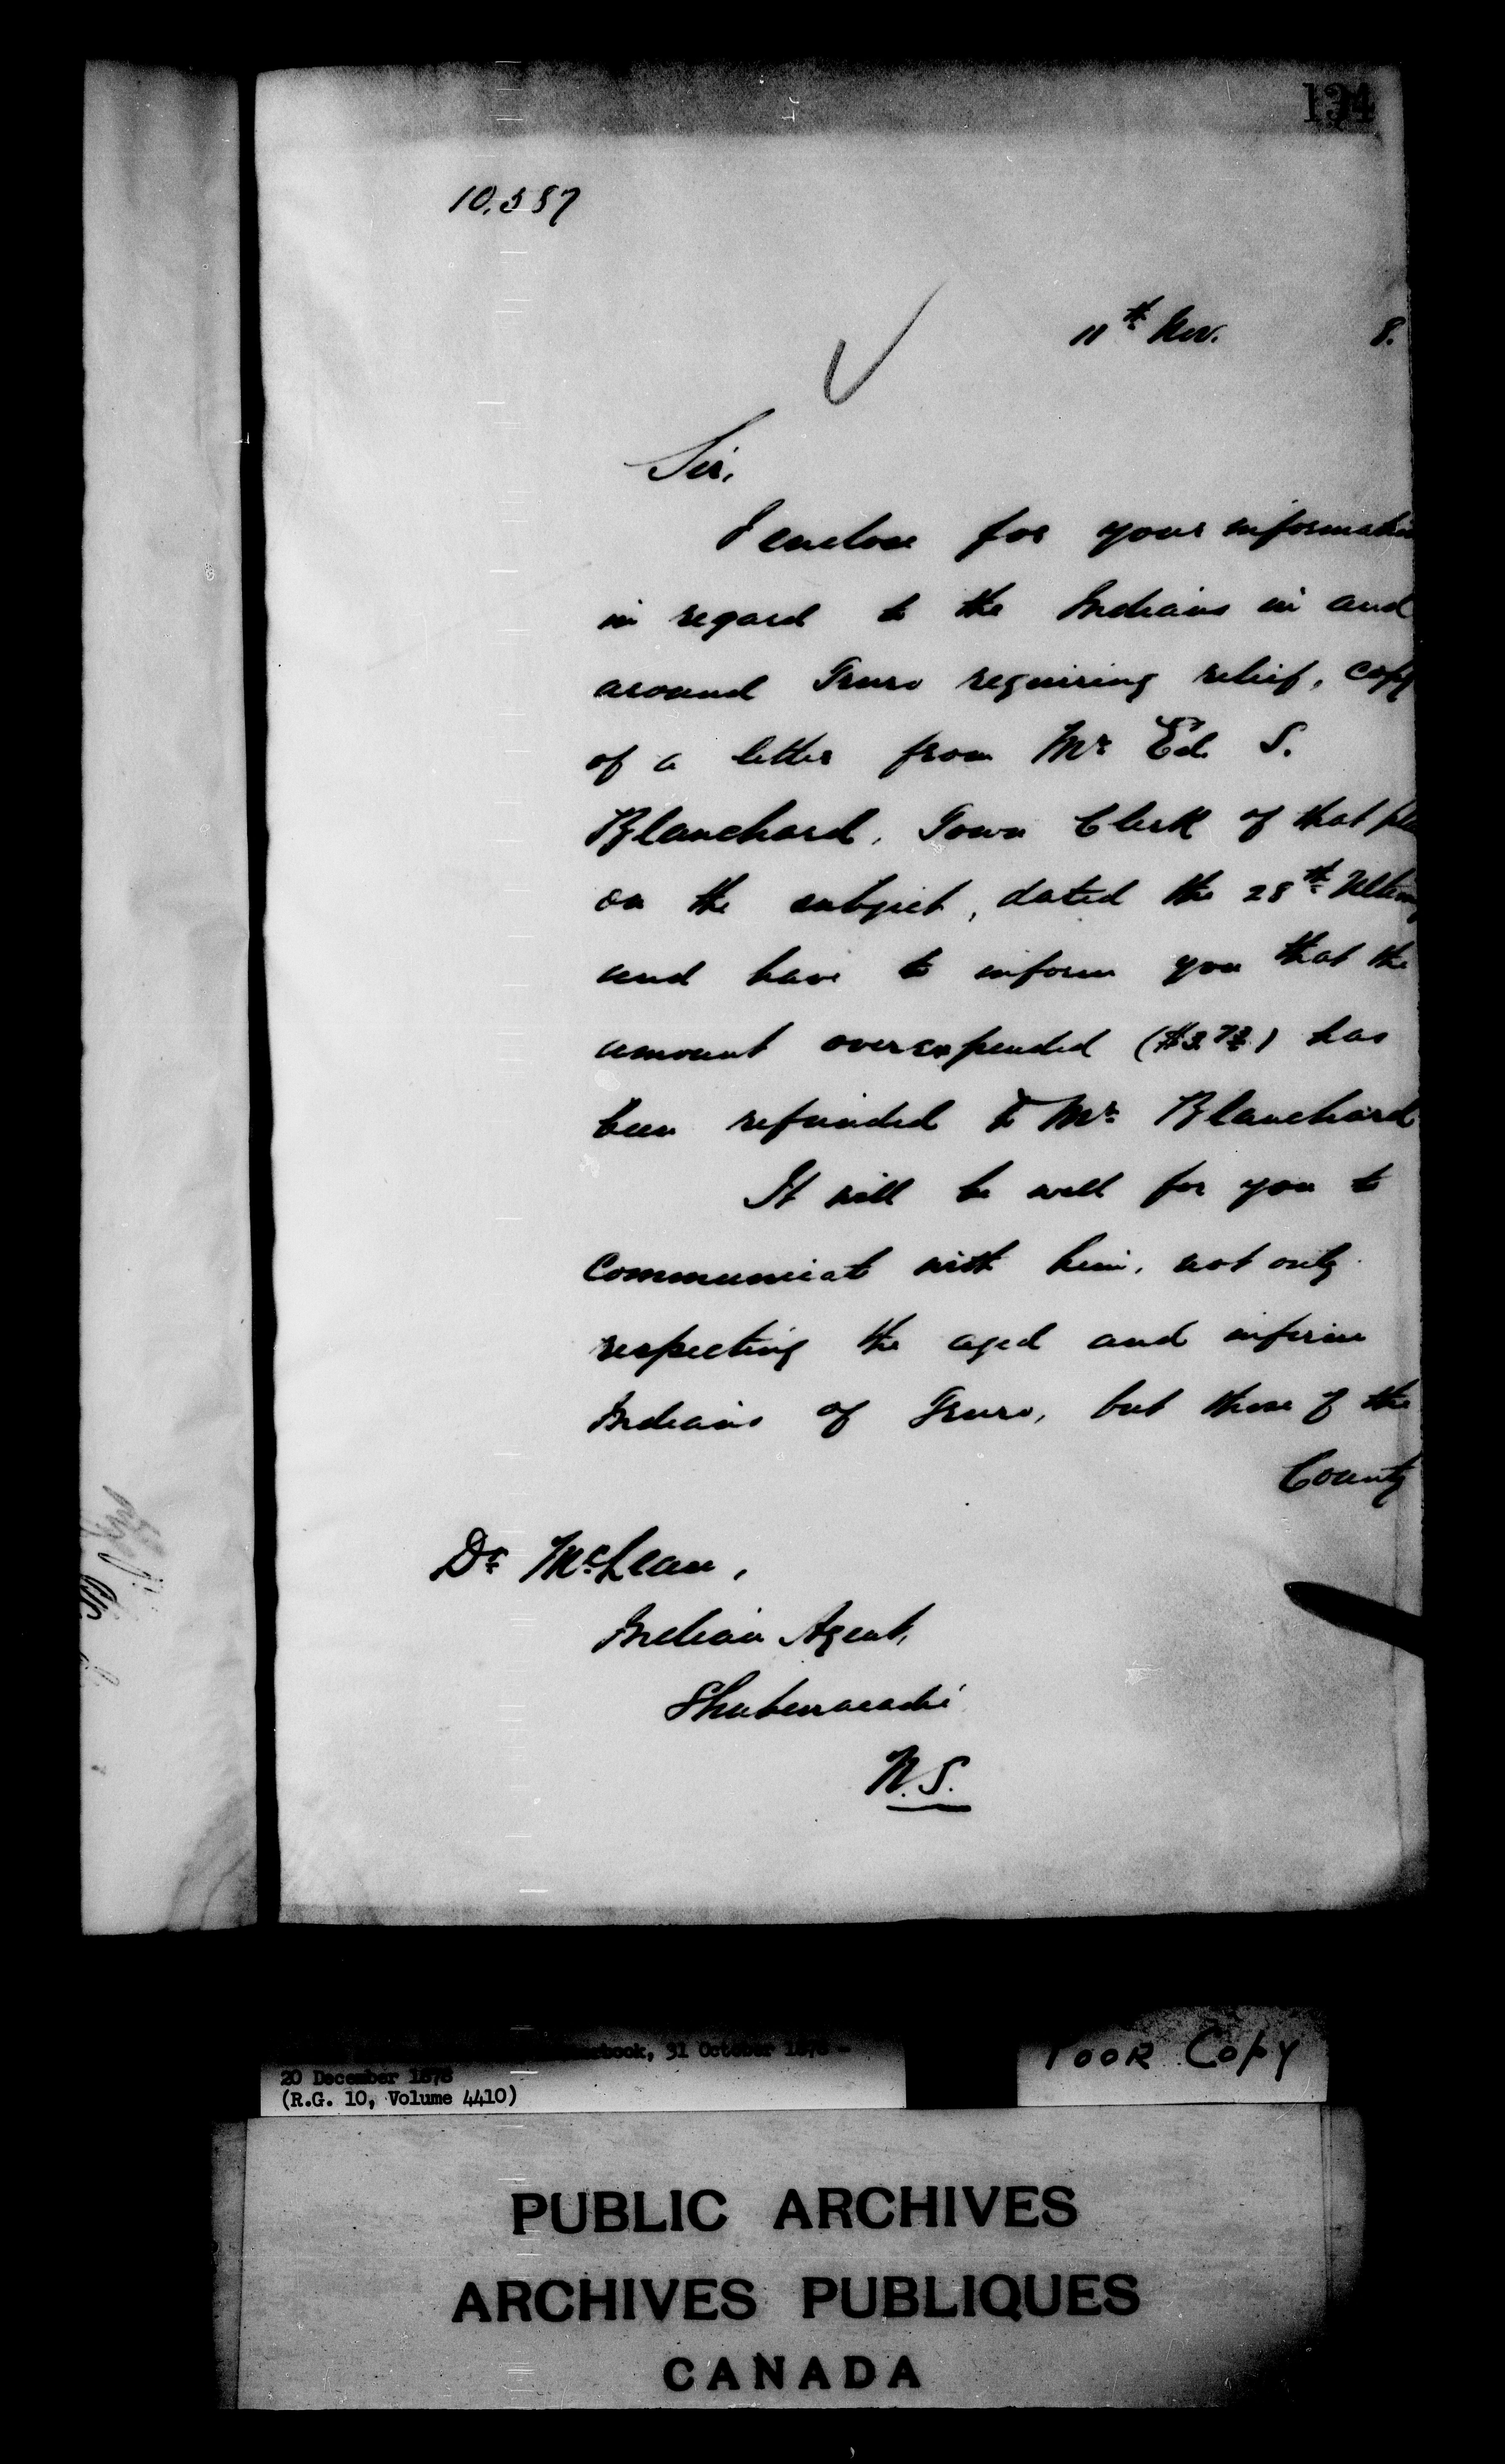 134
10.587
11th Nov. 8.
Sir,
I enclose for your informatio
in regard to the Indians in and
around Truro requiring relief, copy
of a letter from Mr Ed. S.
Blanchard, Town Clerk of that pla
on the subject, dated the 28th Ultim
and have to inform you that the
amount overexpended ($3.73) has
been refunded to Mr. Blanchard
It will be well for you to
communicate with him, not only
respecting the aged and infirm
Indians of Truro, but those of the
County
Dr. McLean,
Indian Agent,
Shubenacadie
N.S.
erbook, 31 October 1878 -
20 December 1878
(R.G. 10, Volume 4410)
POOR Copy
PUBLIC ARCHIVES
ARCHIVES PUBLIQUES
CANADA